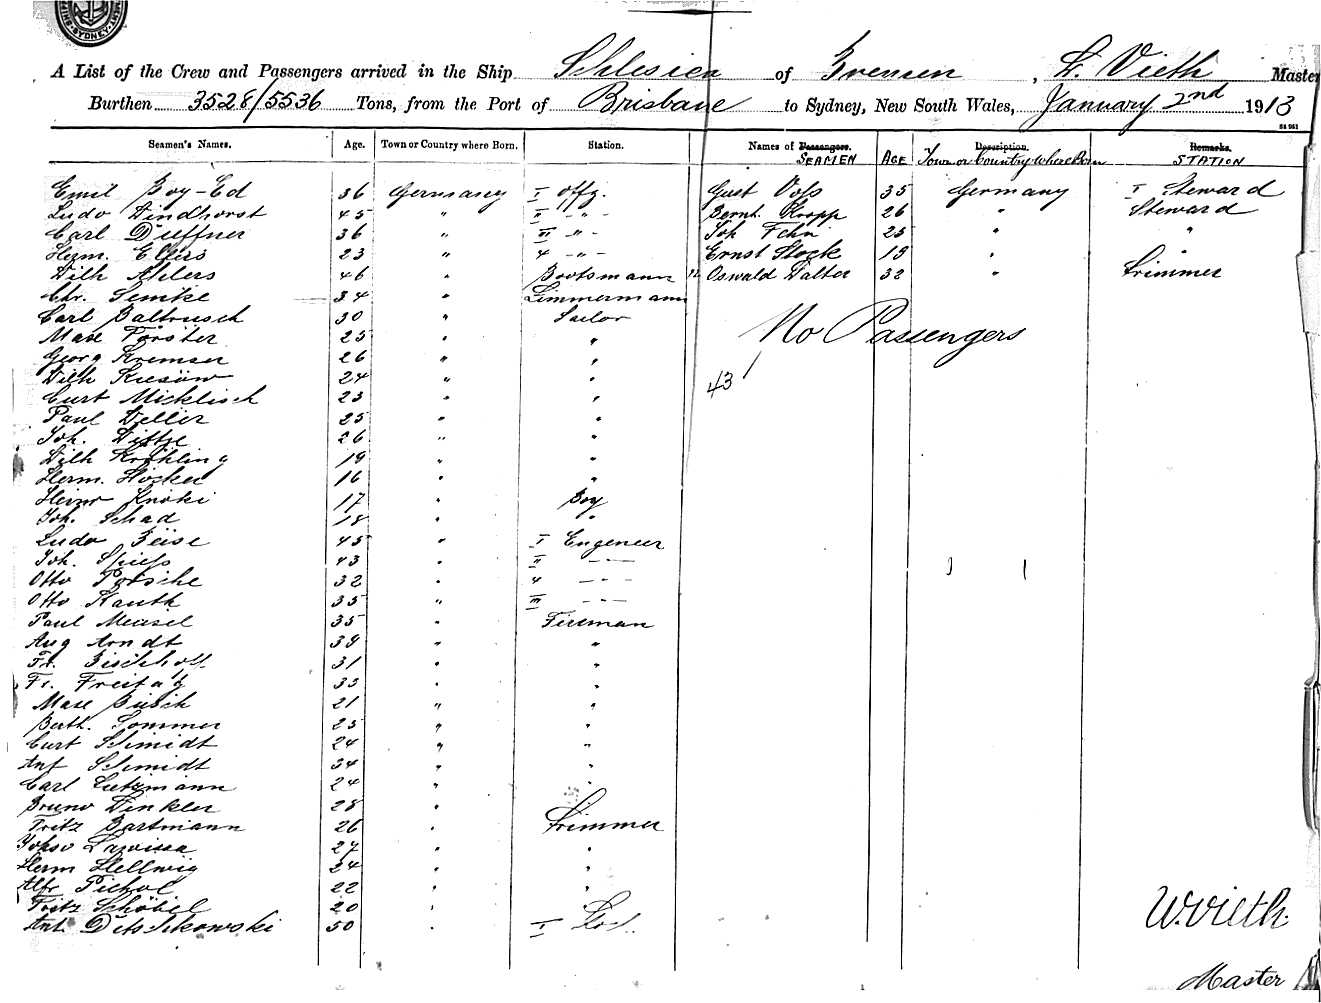 SYDNEY
A List of the Crew and Passengers arrived in the Ship Schlesien of Bremen, L. Vieth Master
Burthen 3528/5536 Tons, from the Port of Brisbane to Sydney, New South Wales, January 2nd 1913
Seamen's Names. Age. Town or Country where Born. Station. Names of Passengers. Description. Remarks.
SEAMEN AGE Town or Country where Born STATION
Emil Boy-Ed 36 Germany I Offz. Gust Voss 35 Germany I Steward
Ludo Lindhorst 45 " II -"- Bernh. Kropp 26 " Steward
Carl Duffner 36 " III -"- Joh 25 " "
Herm. Ehlers 23 " 4 -"- Ernst Stock 19 "
Wilh Ahlers 46 " Bootsmann Oswald Walter 32 " Trimmer
Chr. Semke 34 " Zimmermann
Carl Baltrusch 30 " Sailor
Max Förster 25 " "
No Passengers
Georg Kremser 26 " "
Wilh Kiesow 24 " "
43
Curt Micklisch 23 " "
Paul Weller 25 " "
Joh. Witte 26 " "
Wilh Kröhling 19 " "
Herm. Höcker 16 " "
Heinr Knöki 17 " Boy
Joh. Schad 18 " "
Ludo Zeise 45 " I Engeneer
Joh. Spiess 43 " II -"-
Otto Porsche 32 " 4 -"-
Otto Kauth 35 " III -"-
Paul Meisel 35 " Fireman
Aug Arndt 39 " "
Fr. Bischhoff 31 " "
Fr. Freitag 33 " "
Max Busch 21 " "
Berth. Sommer 25 " "
Curt Schmidt 24 " "
Ant Schmidt 34 " "
Carl Lietzmann 24 " "
Bruno Winkler 28 "
Fritz Bartmann 26 " Trimmer
27 " "
Herm Hellwig 24 " "
Alfr Pichol 22 " "
Fritz Schöbel 20 " "
Ant. Detschkowski 50 " I
W. Vieth.
Master